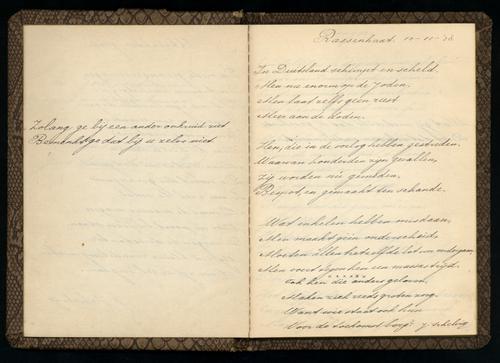 Zolang ge bij een ander onkruid ziet
Bemerkt ge dat bij u zelve niet
Rassenhaat. 10-11-38
In Duitsland schimpt en scheld
Men nu enorm op de Joden.
Men laat zelfs geen rust
Meer aan de doden.
Hen, die in de oorlog hebben gestreden,
Waarvan honderden zijn gevallen,
Zij worden nu gemeden,
Bespot, en gemaakt ten schande.
Wat enkelen hebben misdaan,
Men maakt geen onderscheid,
Moeten allen hetzelfde lot ondergaan,
Men voert tegen hen een massastrijd.
Ook hen die anders geloven,
Maken zich reeds groten zorg.
Want wie staat ook hen
Voor de toekomst borg?